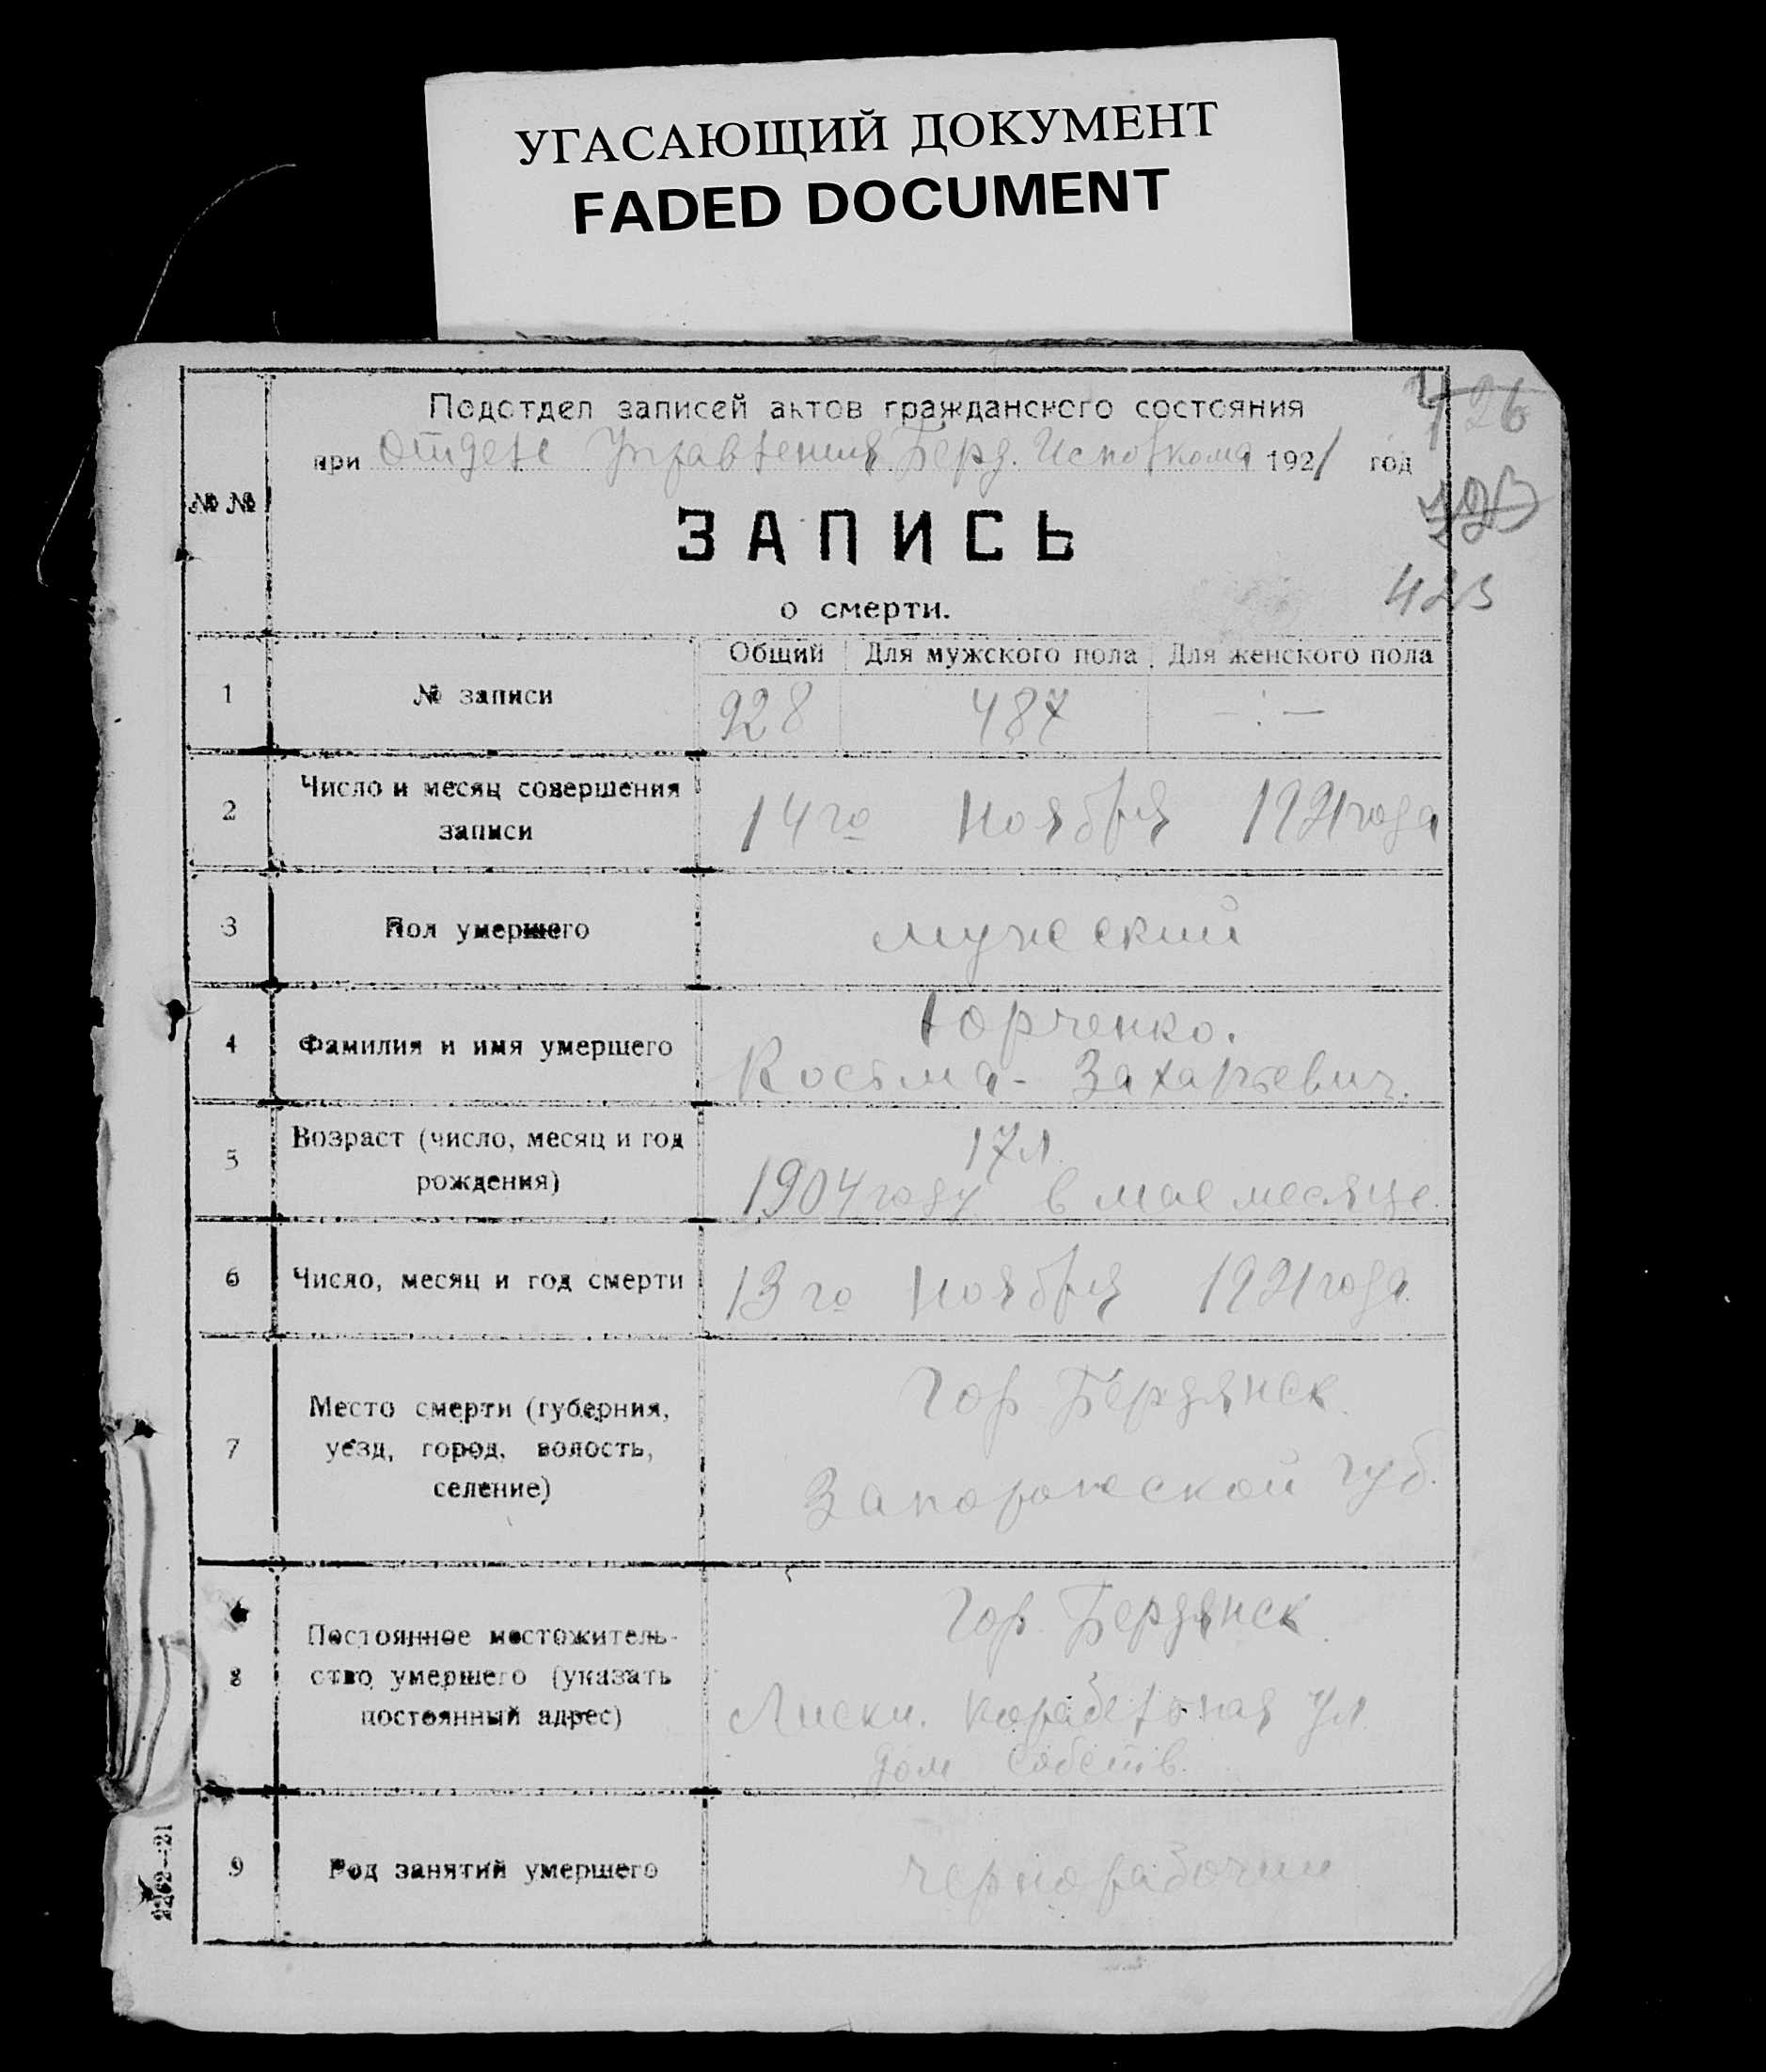 УГАСАЮЩИЙ ДОКУМЕНТ
FADED DOCUMENT
Подотдел записей актов гражданского состояния
при Отделе Управления Берд. Исполкома 1921 год
№ №
ЗАПИСЬ
о смерти.
426
423
Общий Для мужского пола Для женского пола
1 № записи 928 487 —:—
2 Число и месяц совершения
записи
14го Ноября 1921 года
3 Пол умершего мужеский
4 Фамилия и имя умершего
Юрченко.
Косьма - Захарьевич.
5 Возраст (число, месяц и год
рождения)
17 л
1904 году в мае месяце.
6 Число, месяц и год смерти 13го Ноября 1921 года.
7 Место смерти (губерния,
уезд, город, волость,
селение)
Гор Бердянск.
Запорожеской губ.
8 Постоянное местожитель-
ство умершего (указать
постоянный адрес)
Гор. Бердянск.
Лиски. Корабельная ул
дом собств.
9 Род занятий умершего чернорабочий
2262—21